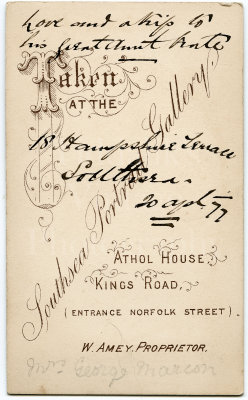 Love and a kiss to
his Great Aunt Kate
Taken
AT THE
Southsea Portrait Gallery,
18 Hampshire Terrace
Southsea.
20 Apl 77
ATHOL HOUSE
KINGS ROAD,
(ENTRANCE NORFOLK STREET).
W. AMEY, PROPRIETOR.
Mrs George Marcon